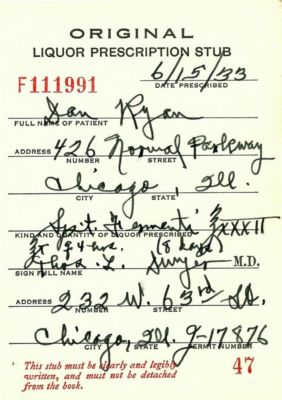 ORIGINAL
LIQUOR PRESCRIPTION STUB
F111991
6/15/33
DATE PRESCRIBED
Dan Ryan
FULL NAME OF PATIENT
426 Normal Parkway
ADDRESS NUMBER STREET
Chicago, Ill.
CITY STATE
Spt. Fermenti
KIND AND QUANTITY OF LIQUOR PRESCRIBED
(8 days)
L. Dwyer M.D.
SIGN FULL NAME
232 W. 63rd St.
ADDRESS NUMBER STREET
Chicago, Ill. 9-17876
CITY STATE PERMIT NUMBER
This stub must be clearly and legibly
written, and must not be detached
from the book.
47